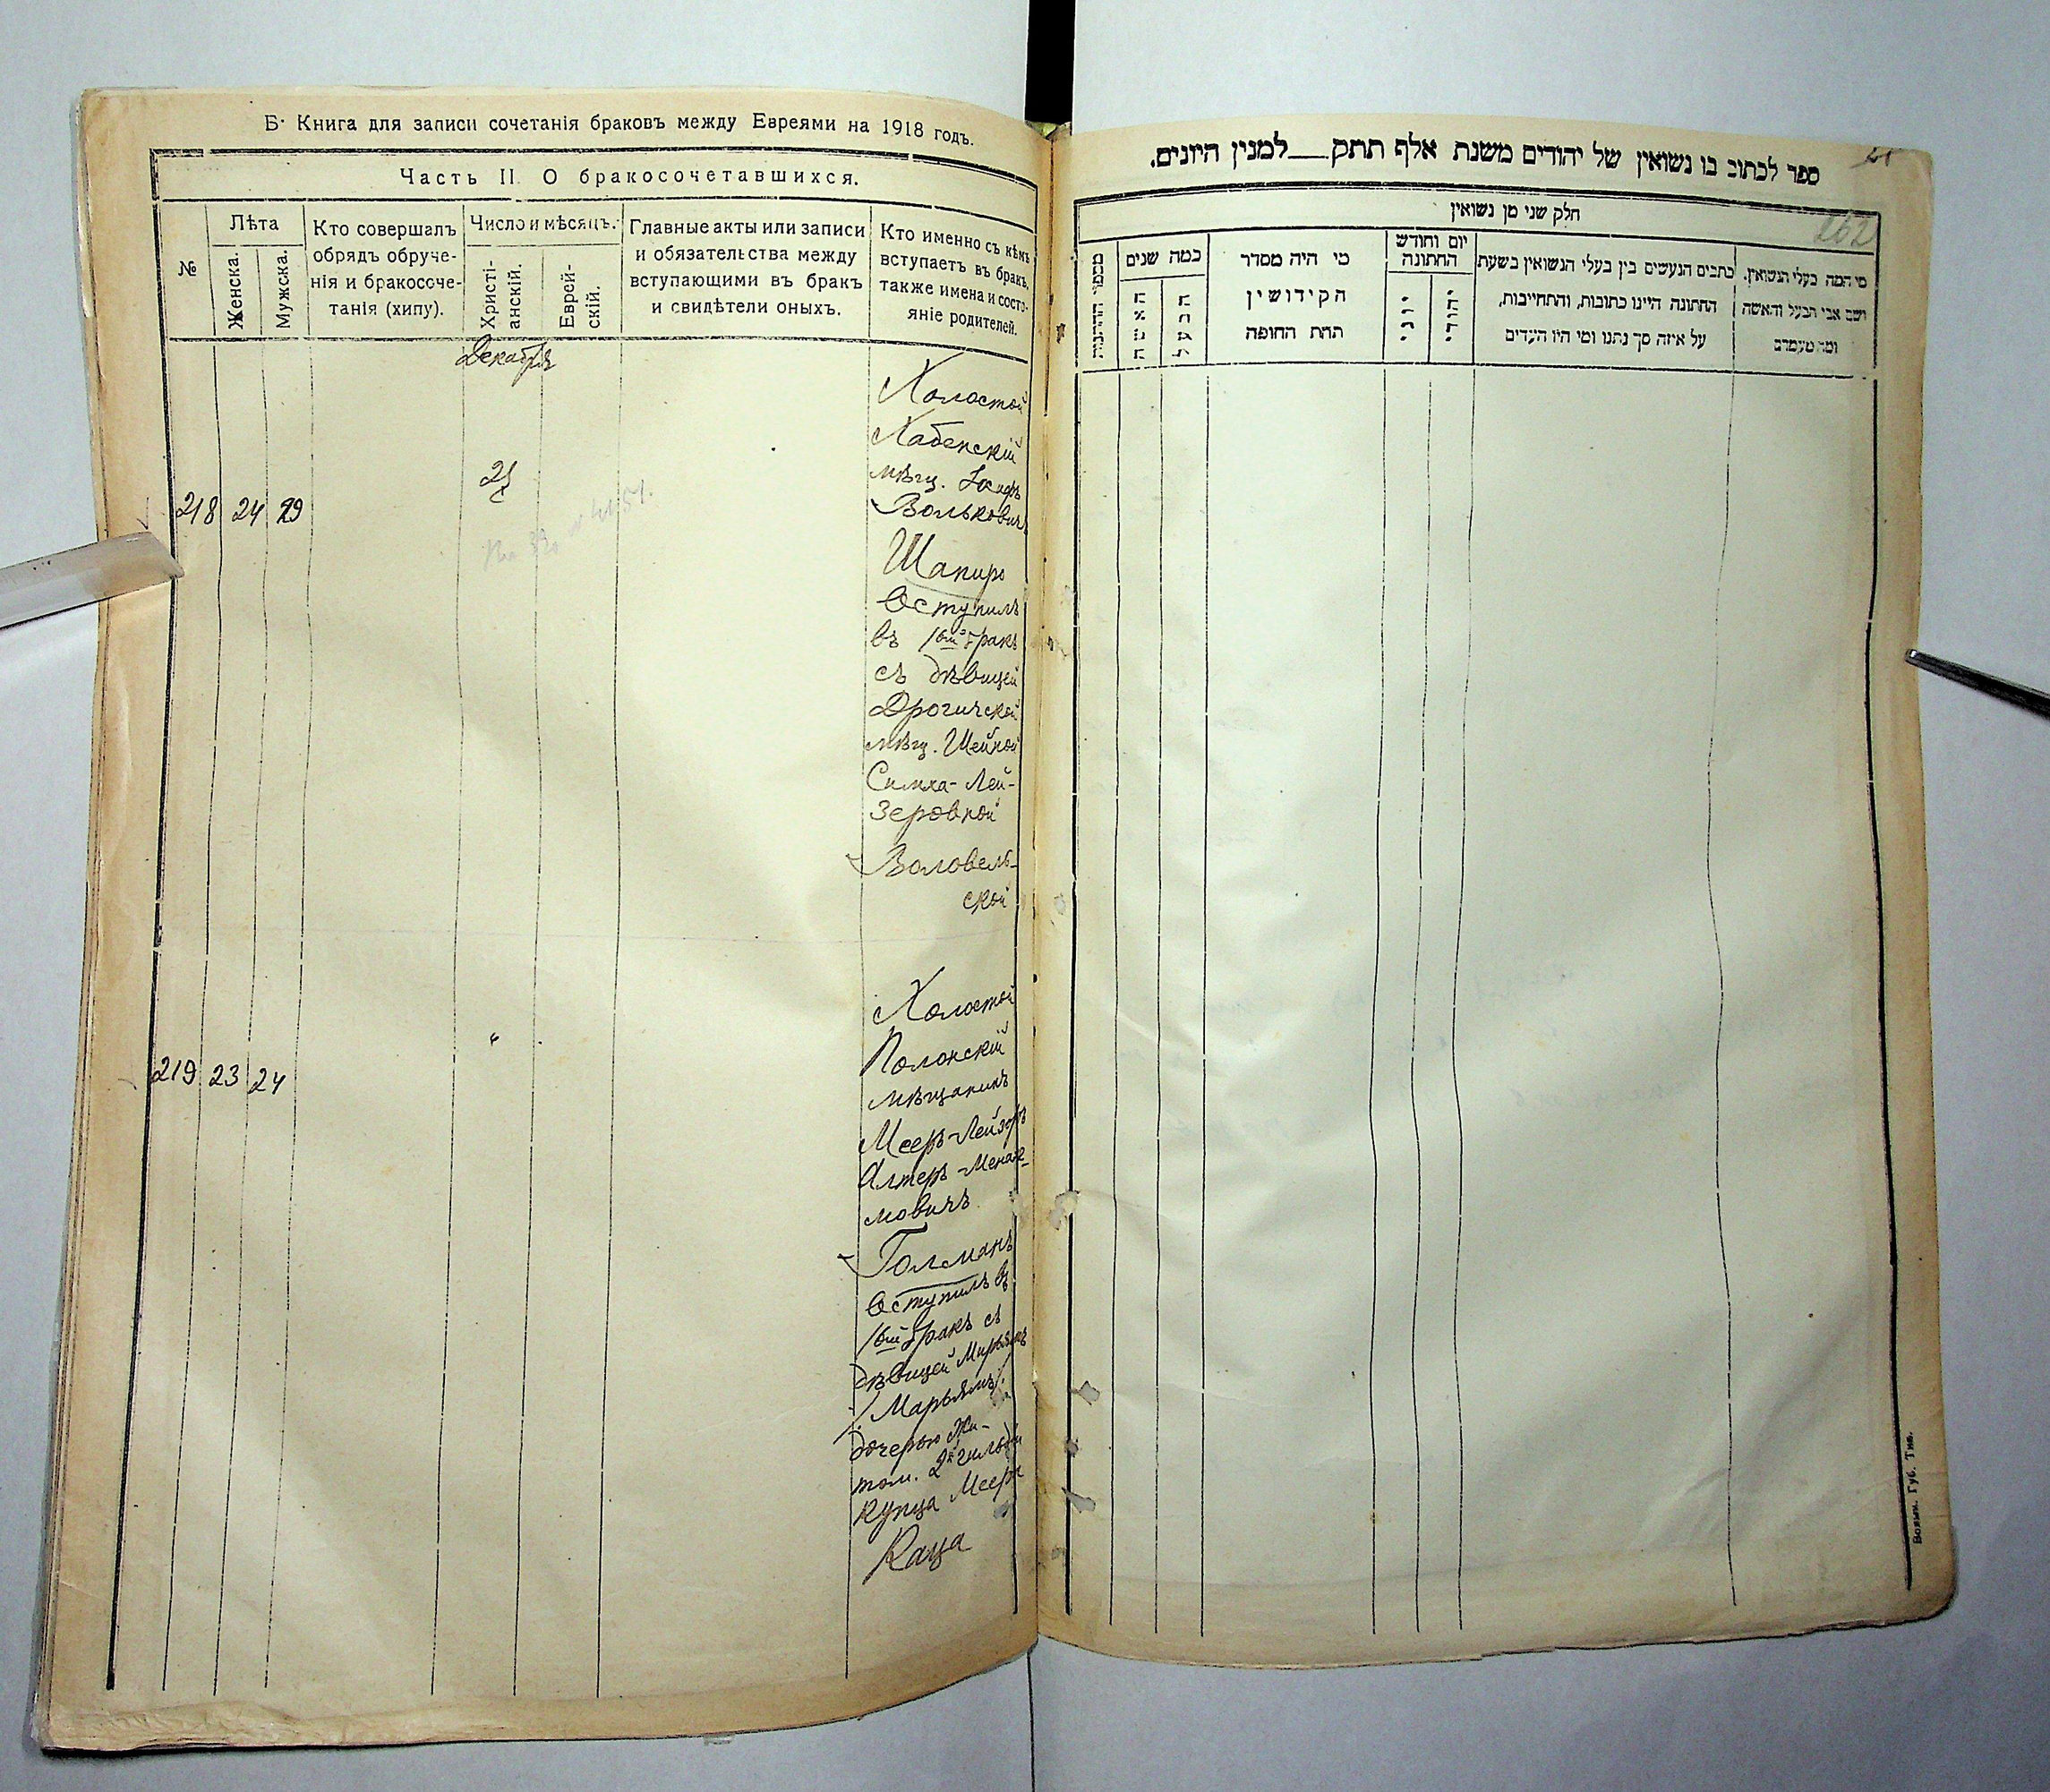 Б. Книга для записи сочетанія браковъ между Евреями на 1918 годъ.
Часть II. О бракосочетавшихся.
№
Лѣта
Женска.
Мужска.
Кто совершалъ
обрядъ обруче-
нія и бракосоче-
танія (хипу).
Число и мѣсяцъ.
Христі-
анскій.
Еврей-
скій.
Главные акты или записи
и обязательства между
вступающими въ бракъ
и свидѣтели оныхъ.
Кто именно съ кѣмъ
вступаетъ въ бракъ,
также имена и состо-
яніе родителей.
Декабря
218 24 29
Холостой
Хабенскій
мѣщ.
Вольковичъ
Шапиро
вступилъ
въ 1ый бракъ
съ дѣвицей
Дрогичской
мѣщ. Шейной
Симха-Лей-
зеровной
Воловель-
ской
219 23 24
"
Холостой
Полонскій
мѣщанинъ
Мееръ-Лейзеръ
Алтеръ-Менахе-
мовичъ
Голманъ
вступилъ въ
1ый бракъ съ
дѣвицей Мирьямъ
/Марьямъ/
дочерью Жи-
том. 2й гильдіи
купца Меера
Каца
ספר לכתוב בו נשואין של יהודים משנת אלף תתק__למנין היונים.
262
חלק שני מן נשואין
מספר החתונות
כמה שנים
האשה
הבעל
מי היה מסדר
הקידושין
תחת החופה
יום וחודש
החתונה
יוני
יהודי
כתבים הנעשים בין בעלי הנשואין בשעת
החתונה היינו כתובות, והתחייבות,
על איזה סך נתנו ומי היו העדים
מי המה בעלי הנשואין.
ושם אבי הבעל והאשה
ומה מעמדם
Волын. Губ. Тип.